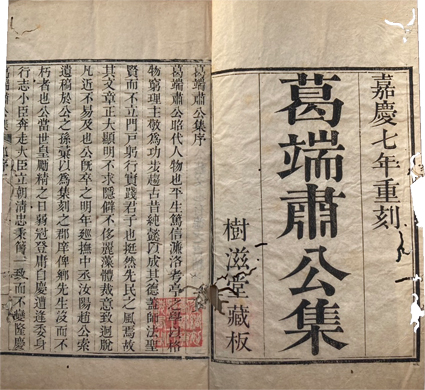 嘉慶七年重刻
葛端肅公集
樹滋堂藏板
葛端肅公集序
葛端肅公昭代人物也平生篤信濂洛考亭之學以格
物窮理主敬為功步趨古昔純懿育成其德蓋師法聖
賢而不立門戶躬行實踐君子也挺然先民之風焉故
其文章正大顯明不求隱僻不侈麗藻體裁意致迥脫
凡近不易及也公既卒之明年經撫中丞汝陽趙公索
遺稿於公之孫葉以為集刻之郡庠俾鄉先生沒而不
朽者也公當世皇勵精之日弱冠登庸自慶遭逢委身
行志小臣奔走大臣立朝清忠秉簡一致而不變隆慶